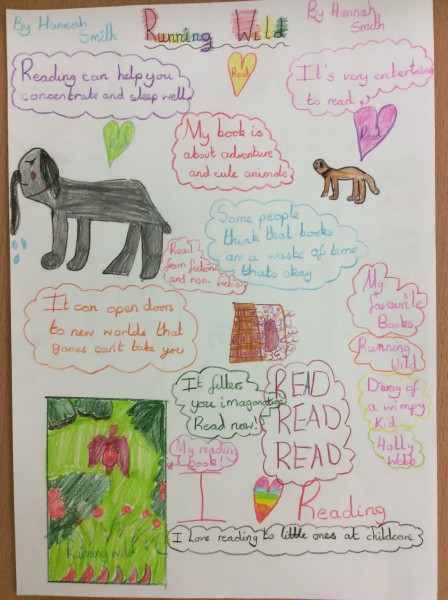 By Hannah
Smith
Running Wild
By Hannah
Smith
Reading can help you
concentrate and sleep well.
Read
It's very entertaining
to read
Read
Read
My book is
about adventure
and cute animals
Some people
think that books
are a waste of time
thats okay
Read
from fiction
and non-fiction
It can open doors
to new worlds that
games can't take you
My
favourite
Books
Running
Wild
Diary of
a wimpy
Kid
Holly
Webb
It fillers
you imagonation
Read now!
READ
READ
READ
My reading
book!
Reading
Running wild
I Love reading to little ones at childcare